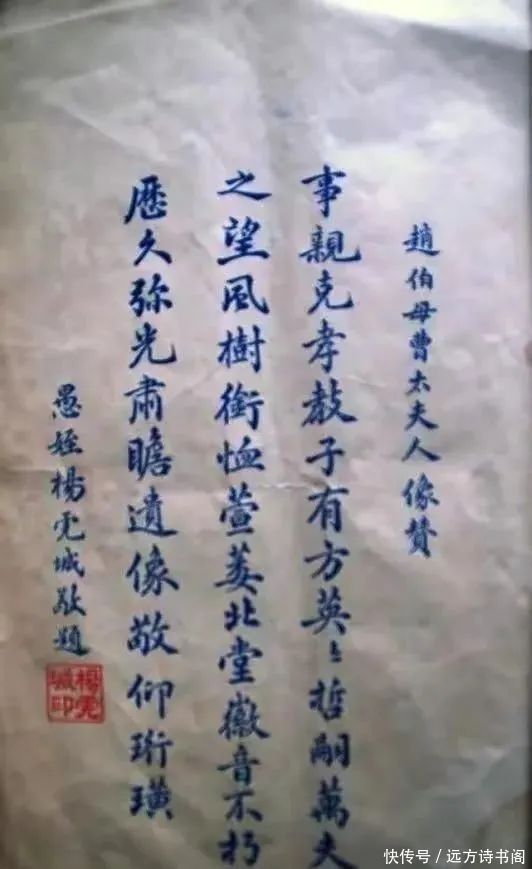 趙伯母曹太夫人像贊
事親克孝教子有方英〻哲嗣萬夫
之望風樹銜恤萱萎北堂徽音不朽
歷久弥光肅瞻遺像敬仰珩璜
愚姪楊虎城敬題
楊虎城印
快传号／远方诗书阁